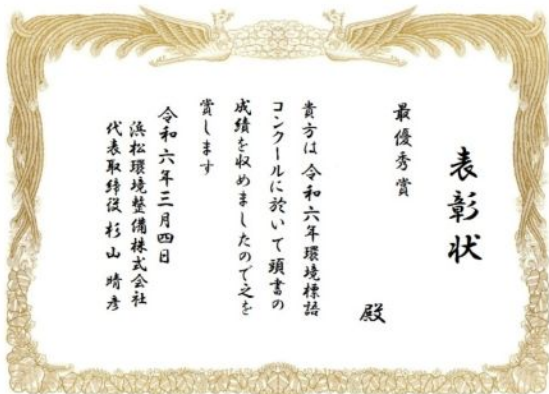 表彰状
最優秀賞
殿
貴方は令和六年環境標語
コンクールに於いて頭書の
成績を収めましたので之を
賞します
令和六年三月四日
浜松環境整備株式会社
代表取締役 杉山 晴彦